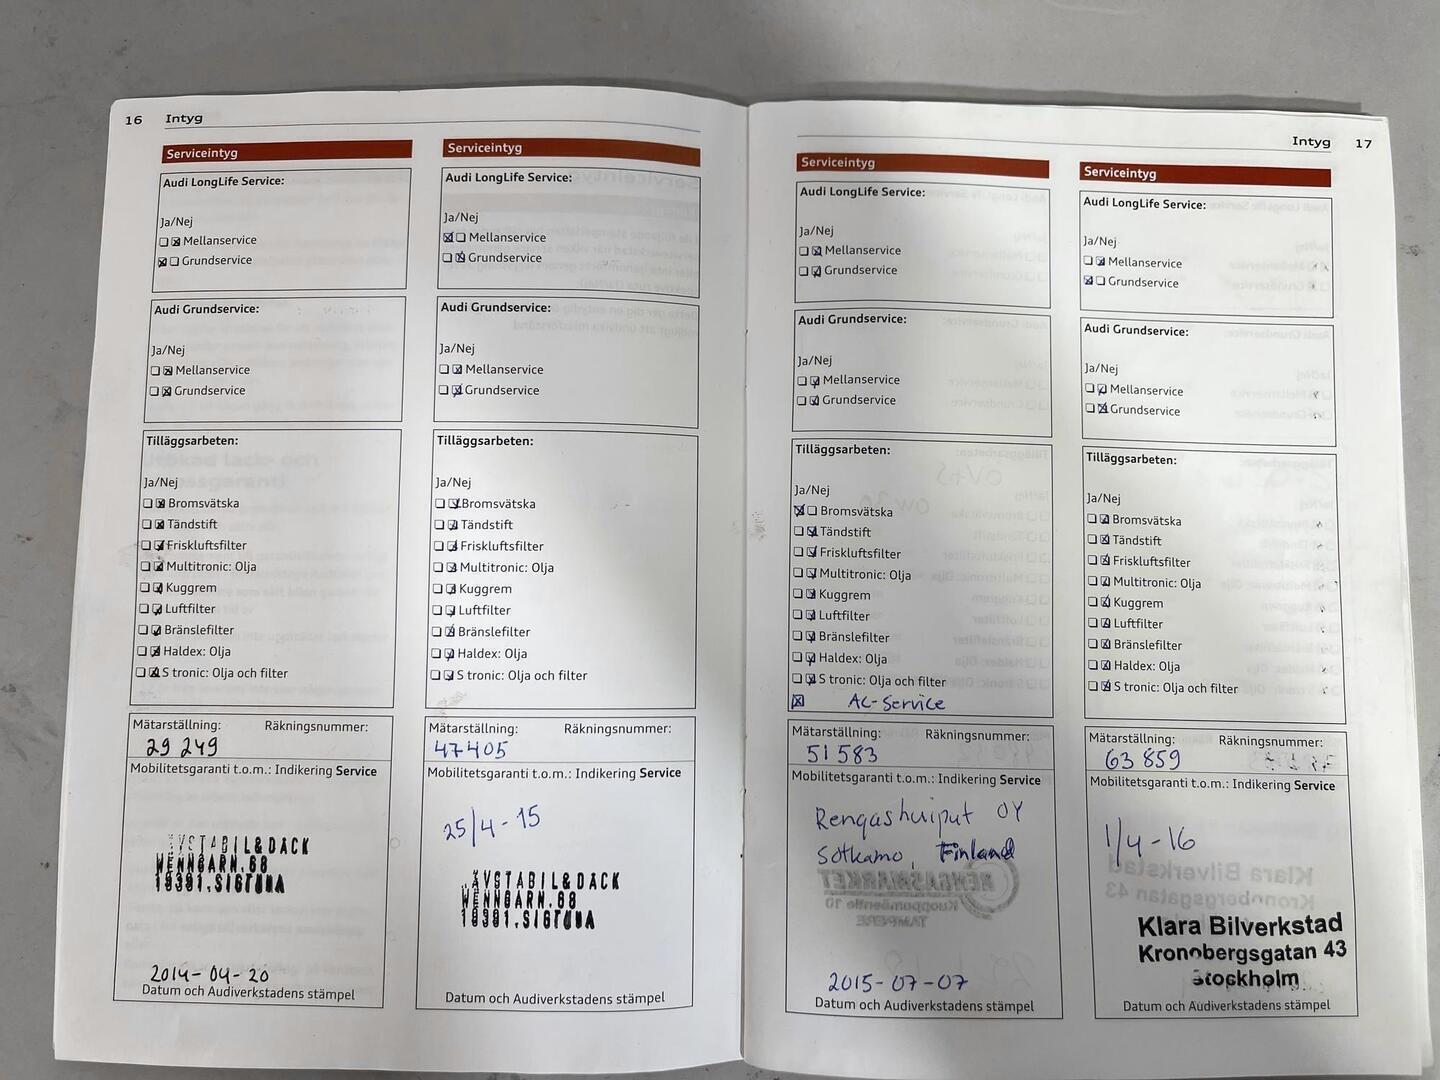 16 Intyg
Serviceintyg
Audi LongLife Service:
Ja/Nej
Mellanservice
Grundservice
Audi Grundservice:
Ja/Nej
Mellanservice
Grundservice
Tilläggsarbeten:
Ja/Nej
Bromsvätska
Tändstift
Friskluftsfilter
Multitronic: Olja
Kuggrem
Luftfilter
Bränslefilter
Haldex: Olja
S tronic: Olja och filter
Mätarställning: Räkningsnummer:
29 249
Mobilitetsgaranti t.o.m.: Indikering Service
AVSTABIL&DACK
WENNGARN.68
19391.SIGTUNA
2014-04-20
Datum och Audiverkstadens stämpel
Serviceintyg
Audi LongLife Service:
Ja/Nej
Mellanservice
Grundservice
Audi Grundservice:
Ja/Nej
Mellanservice
Grundservice
Tilläggsarbeten:
Ja/Nej
Bromsvätska
Tändstift
Friskluftsfilter
Multitronic: Olja
Kuggrem
Luftfilter
Bränslefilter
Haldex: Olja
S tronic: Olja och filter
Mätarställning: Räkningsnummer:
47405
Mobilitetsgaranti t.o.m.: Indikering Service
25/4-15
AVSTABIL&DACK
WENNGARN.68
19391.SIGTUNA
Datum och Audiverkstadens stämpel
Intyg 17
Serviceintyg
Audi LongLife Service:
Ja/Nej
Mellanservice
Grundservice
Audi Grundservice:
Ja/Nej
Mellanservice
Grundservice
Tilläggsarbeten:
Ja/Nej
Bromsvätska
Tändstift
Friskluftsfilter
Multitronic: Olja
Kuggrem
Luftfilter
Bränslefilter
Haldex: Olja
S tronic: Olja och filter
AC-Service
Mätarställning: Räkningsnummer:
51 583
Mobilitetsgaranti t.o.m.: Indikering Service
Rengashuiput OY
Sotkamo, Finland
2015-07-07
Datum och Audiverkstadens stämpel
Serviceintyg
Audi LongLife Service:
Ja/Nej
Mellanservice
Grundservice
Audi Grundservice:
Ja/Nej
Mellanservice
Grundservice
Tilläggsarbeten:
Ja/Nej
Bromsvätska
Tändstift
Friskluftsfilter
Multitronic: Olja
Kuggrem
Luftfilter
Bränslefilter
Haldex: Olja
S tronic: Olja och filter
Mätarställning: Räkningsnummer:
63 859
Mobilitetsgaranti t.o.m.: Indikering Service
1/4-16
Klara Bilverkstad
Kronobergsgatan 43
Stockholm
Datum och Audiverkstadens stämpel